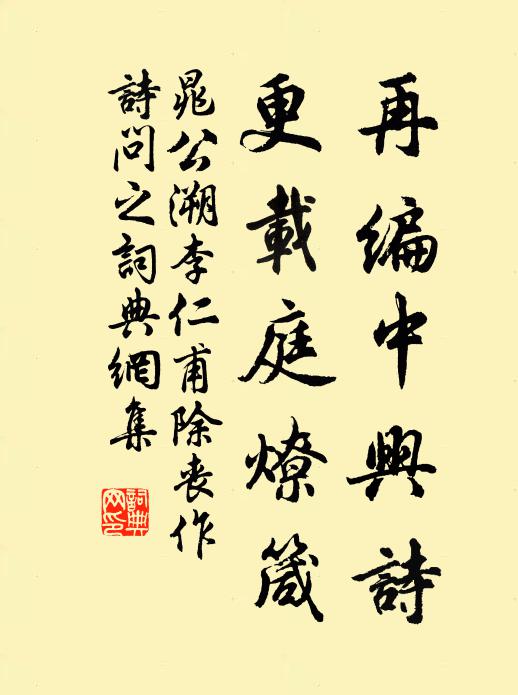 再編中興詩
更載庭燎箴
晁公溯李仁甫除喪作
詩問之詞典網集
詞典网印